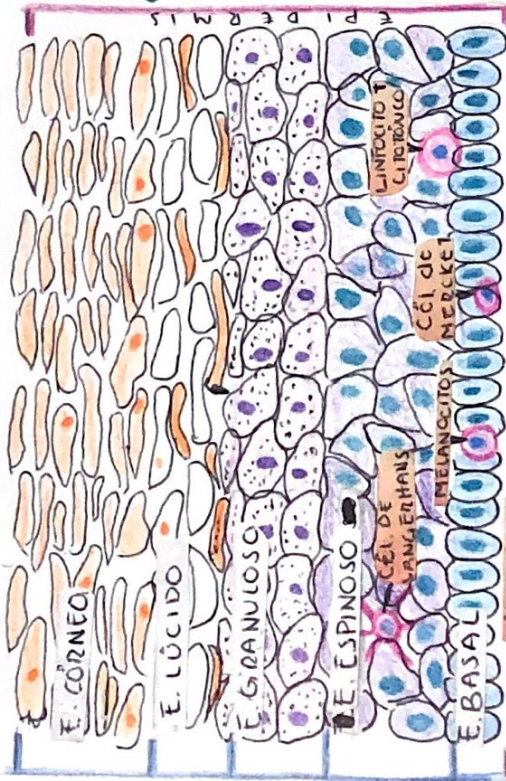 EPIDERMIS
E. CÓRNEO
E. LÚCIDO
E. GRANULOSO
E. ESPINOSO
E. BASAL
CÉL. DE
LANGERHANS
MELANOCITOS
CÉL. de
MERCKEL
LINFOCITO T
CITOTÓXICO